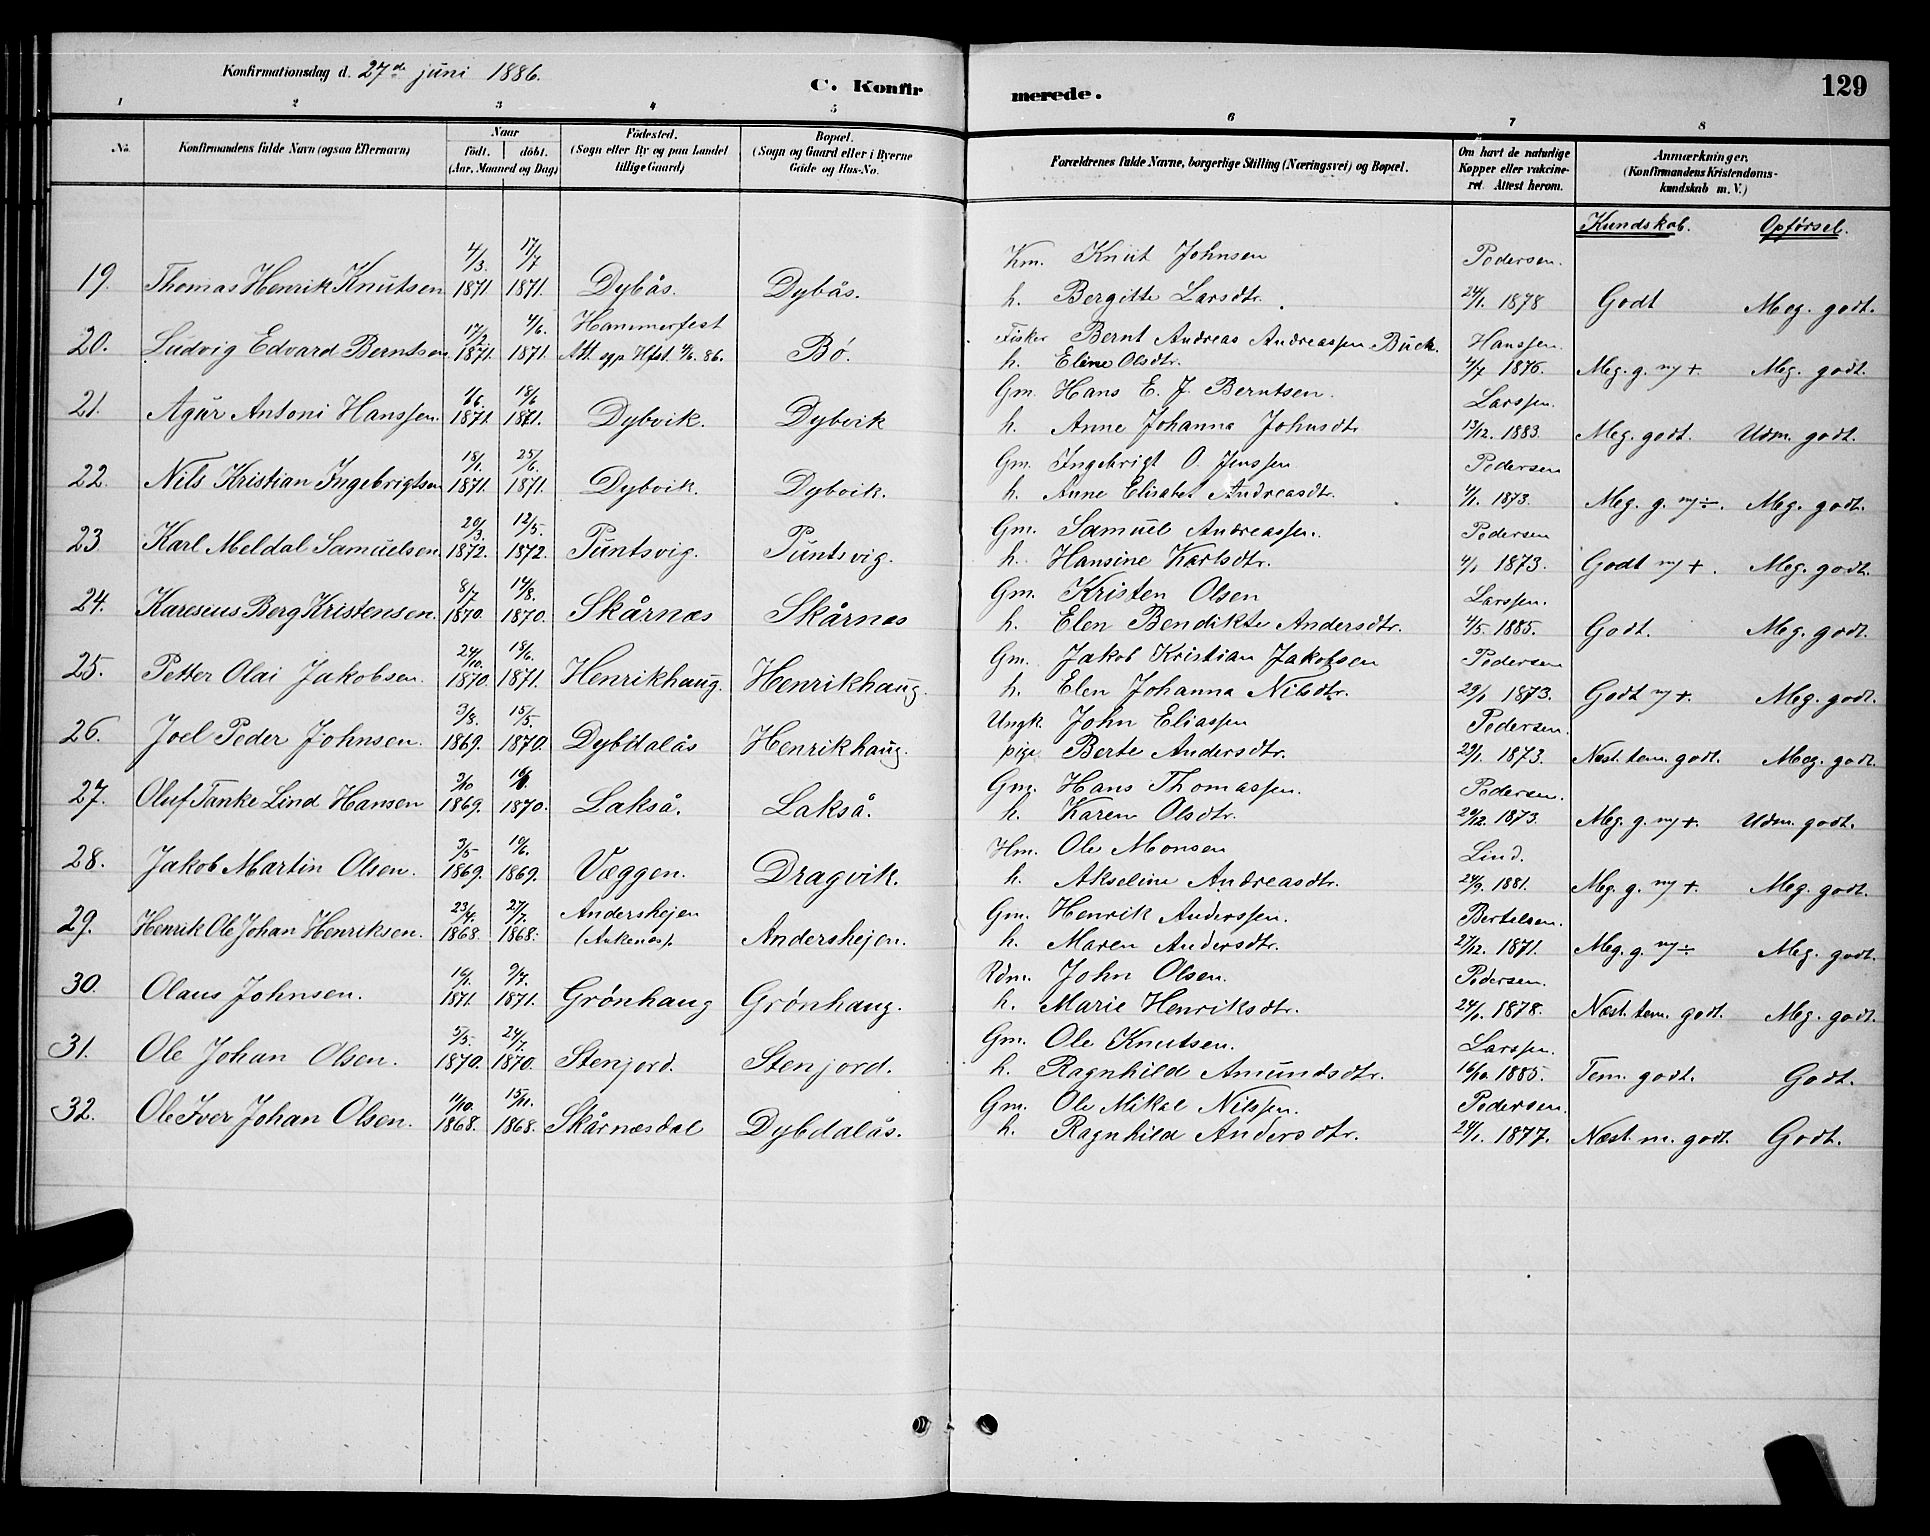 Konfirmationsdag d. 27de juni 1886.
C. Konfirmerede.
129
1 2 3 4 5 6 7 8
No. Konfirmandens fulde Navn (ogsaa Efternavn) Naar født. døbt. (Aar, Maaned og Dag) Fødested. (Sogn eller By og paa Landet tillige Gaard) Bopæl. (Sogn og Gaard eller i Byerne Gade og Hus-No. Forældrenes fulde Navne, borgerlige Stilling (Næringsvei) og Bopæl. Om havt de naturlige Kopper eller vakcineret. Attest herom. Anmærkninger. (Konfirmandens Kristendomskundskab m. V.)
Kundskab. Opførsel.
19. Thomas Henrik Knutsen 4/3. 1871 17/7 1871. Dybås. Dybås. Km. Knut Johnsen h. Bergitte Larsdtr. Pedersen. 24/1. 1878 Godt Meg. godt.
20. Ludvig Edvard Berntsen 17/2 1871. 4/6. 1871. Hammerfest Att. sgp. Hfst. 4/6. 86. Bø. Fisker Bernt Andreas Andreassen Buck. h. Eline Olsdtr. Hanssen. 4/7 1876. Meg. g. ny +. Meg. godt.
21. Agur Antoni Hanssen. 1/6. 1871. 18/6 1871. Dybvik. Dybvik Gm. Hans E. J. Berntsen. h. Anne Johanna Johnsdtr Larssen. 13/12. 1883. Meg. godt. Udm. godt.
22. Nils Kristian Ingebrigtsen 18/1. 1871. 25/6. 1871. Dybvik. Dybvik. Gm. Ingebrigt O. Jenssen h. Anne Elisabet Andreasdtr. Pedersen 4/1. 1873. Meg. g. ny ÷. Meg. godt.
23. Karl Meldal Samuelsen. 20/3. 1872. 12/5. 1872. Puntsvig. Puntsvig. Gm. Samuel Andreassen. h. Hansine Karlsdtr. Pedersen 4/1 1873. Godt ny +. Meg. godt.
24. Karesius Berg Kristensen. 8/7 1870. 14/8. 1870. Skårnæs Skårnæs Gm. Kristen Olsen h. Elen Bendikte Andersdtr. Larssen. 4/5. 1885. Godt. Meg. godt.
25. Petter Olai Jakobsen. 24/10. 1870. 18/6. 1871. Henrikhaug. Henrikhaug. Gm. Jakob Kristian Jakobsen h. Elen Johanna Nilsdtr. Pedersen 29/1 1873. Godt ny +. Meg. godt.
26. Joel Peder Johnsen. 3/8. 1869. 15/5. 1870. Dybdalås Henrikhaug. Ungk. John Eliassen pige Berte Andersdtr. Pedersen. 29/1. 1873. Næst. tem. godt. Meg. godt.
27. Oluf Tanke Lind Hansen 1869. 1870. Lakså. Lakså. Gm. Hans Thomassen. h. Karen Olsdtr. Pedersen. 20/12. 1873. Meg. g. ny +. Udm. godt.
28. Jakob Martin Olsen. 3/5 1869. 19/6. 1869. Væggen. Dragvik. Hm. Ole Monsen h. Akseline Andreasdtr. Lind. 24/9. 1881. Meg. g. ny +. Meg. godt.
29. Henrik Ole Johan Henriksen. 23/4. 1868. 27/7. 1868. Andershejen (Ankenæs). Andershejen. Gm. Henrik Anderssen. h. Maren Andersdtr. Bertelsen. 27/12. 1871. Meg. g. ny ÷ Meg. godt.
30. Olaus Johnsen. 1871. 9/7. 1871. Grønhaug Grønhaug. Rdm. John Olsen. h. Marie Henriksdtr. Pedersen. 24/1. 1878. Næst. tem. godt. Meg. godt.
31. Ole Johan Olsen. 5/3. 1870. 24/7. 1870. Stenjord. Stenjord. Gm. Ole Knutsen. h. Ragnhild Amundsdtr. Larssen. 16/10. 1885. Tem. godt. Godt.
32. Ole Iver Johan Olsen. 11/10. 1868. 15/11. 1868. Skårnæsdal Dybdalås. Gm. Ole Mikal Nilssen. h. Ragnhild Andersdtr. Pedersen. 24/1. 1877. Næst. m. godt. Godt.